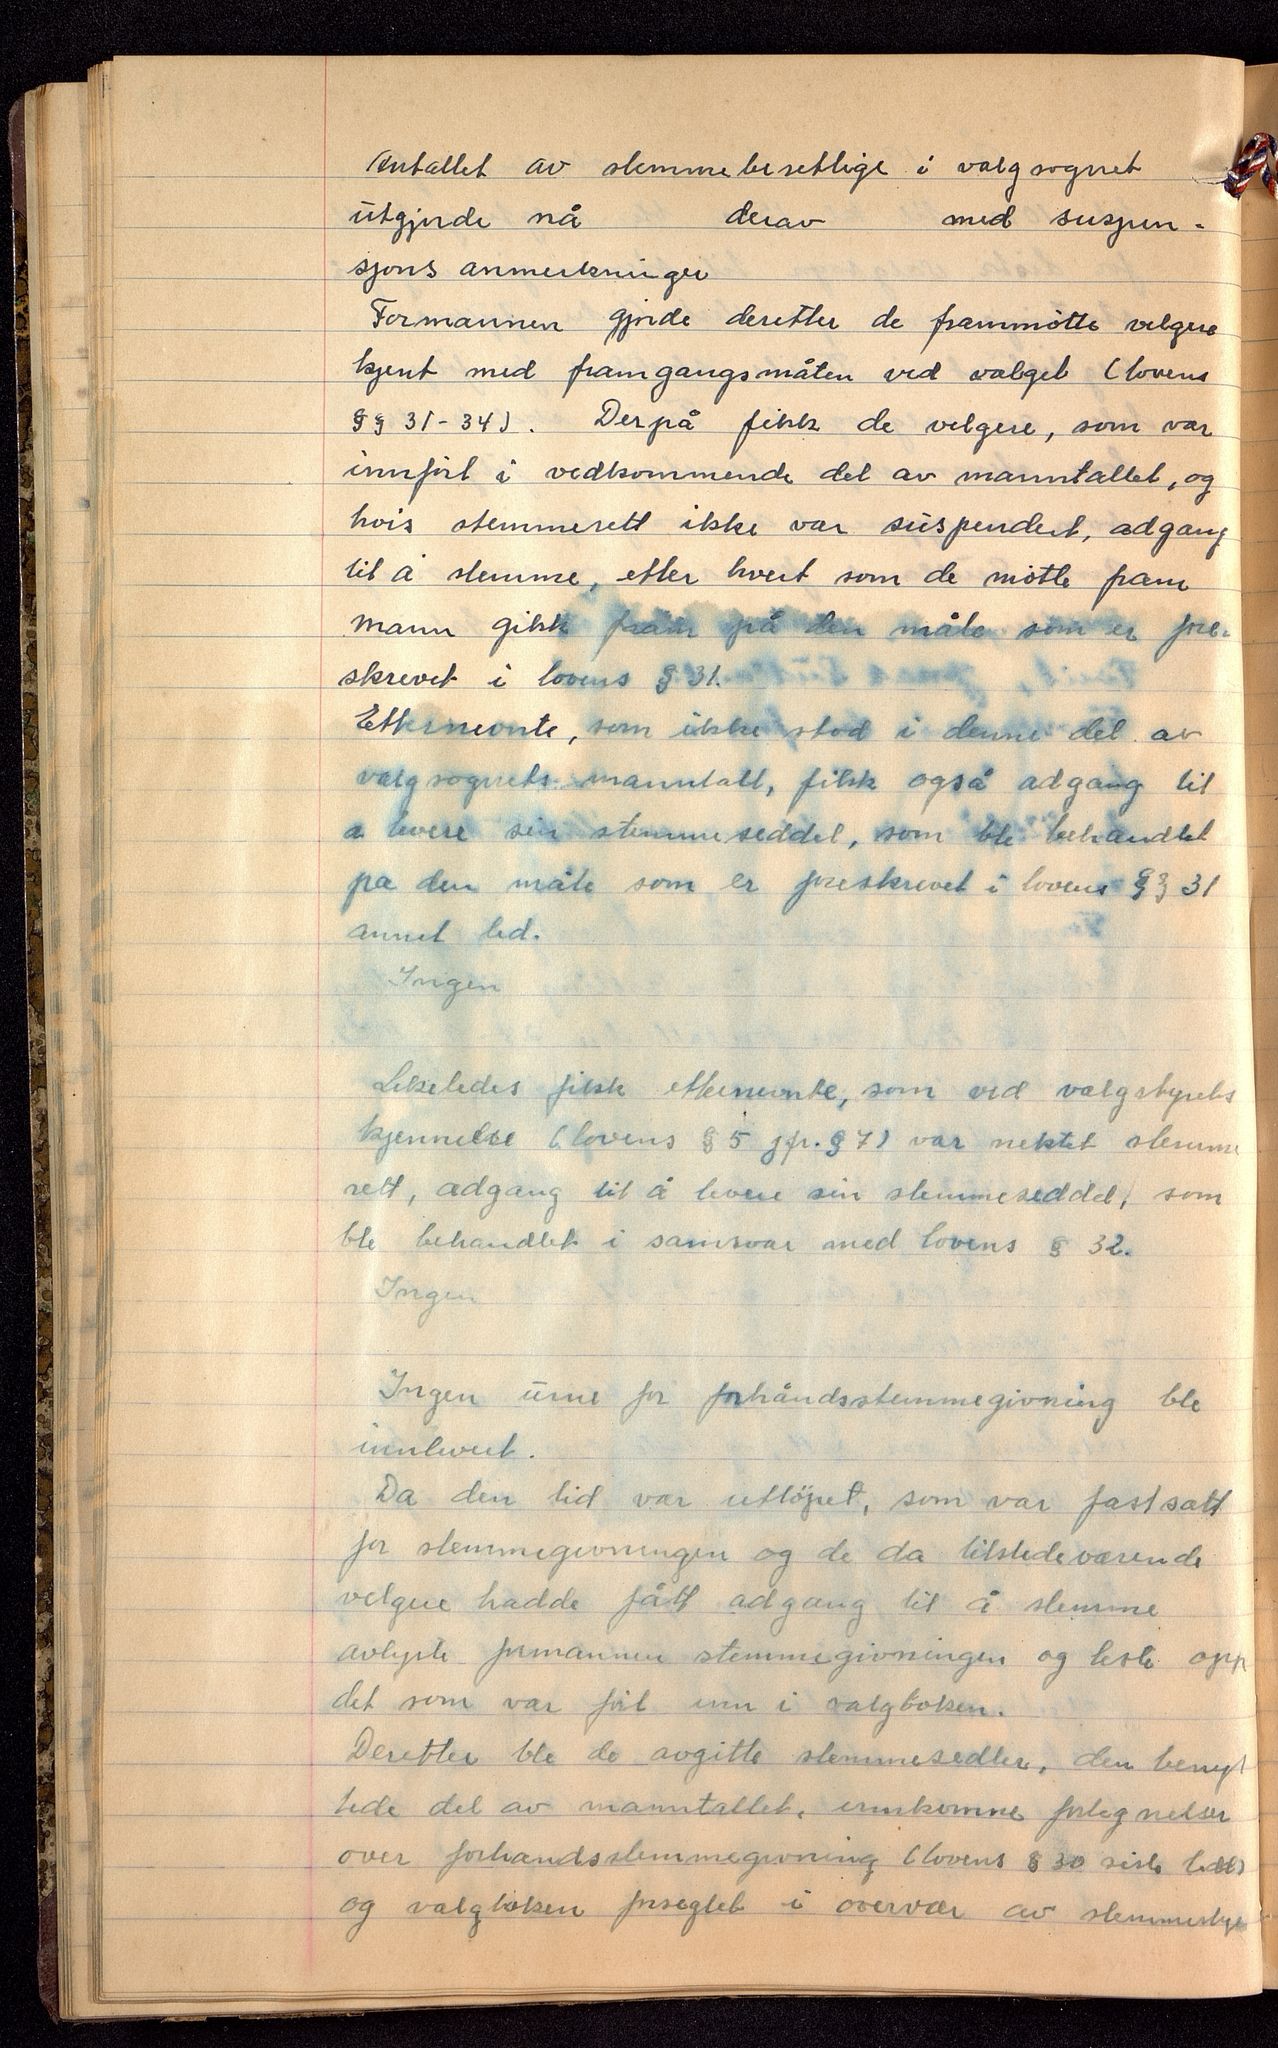 Antallet av stemmeberettige i valgsognet
utgjorde nå derav med suspen-
sjons anmerkninger
Formannen gjorde deretter de frammötte velgere
kjent med framgangsmåten ved valget (lovens
§§ 31-34). Derpå fikk de velgere, som var
innfört i vedkommende del av manntallet, og
hvis stemmerett ikke var suspendert, adgang
til å stemme, etter hvert som de mötte fram
Mann gikk fram på den måte som er fore-
skrevet i lovens § 31.
Etternevnte, som ikke stod i denne del av
valgsognets manntall, fikk også adgang til
å levere sin stemmeseddel, som ble behandlet
på den måte som er foreskrevet i lovens §§ 31
annet led.
Ingen
Likeledes fikk etternevnte, som ved valgstyrets
kjennelse (lovens § 5 jfr. § 7) var nektet stemme
rett, adgang til å levere sin stemmeseddel, som
ble behandlet i samsvar med lovens § 32.
Ingen
Ingen urne for forhåndsstemmegivning ble
innlevert.
Da den tid var utlöpet, som var fastsatt
for stemmegivningen og de da tilstedeværende
velgere hadde fått adgang til å stemme
avlyste formannen stemmegivningen og leste opp
det som var fört inn i valgboken.
Deretter ble de avgitte stemmesedler, den benyt
tede del av manntallet, innkomne fortegnelser
over forhandsstemmegivning (lovens § 30 siste ledd)
og valgboken forseglet i overvær av stemmestyre